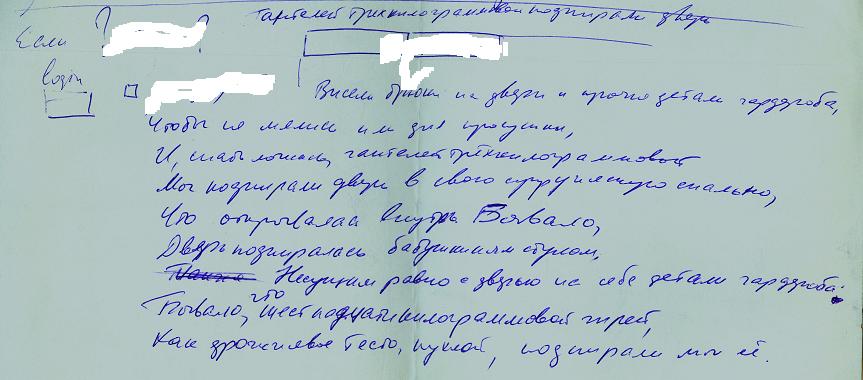 гантелей трёхкилограммовой подпирали дверь
Если ? ?
login
Висели брюки на двери и прочие детали гардероба,
Чтобы не мялись или для просушки,
И, гантелей трёхкилограммовой
Мы подпирали дверь в свою супружескую спальню,
Что открывалась внутрь. Бывало,
Дверь подпиралась бабушкиным стулом,
Несущим равно с дверью на себе детали гардероба.
Бывало, что шестнадцатикилограммовой гирей,
Как дрожжевое тесто, пухлой, подпирали мы её.